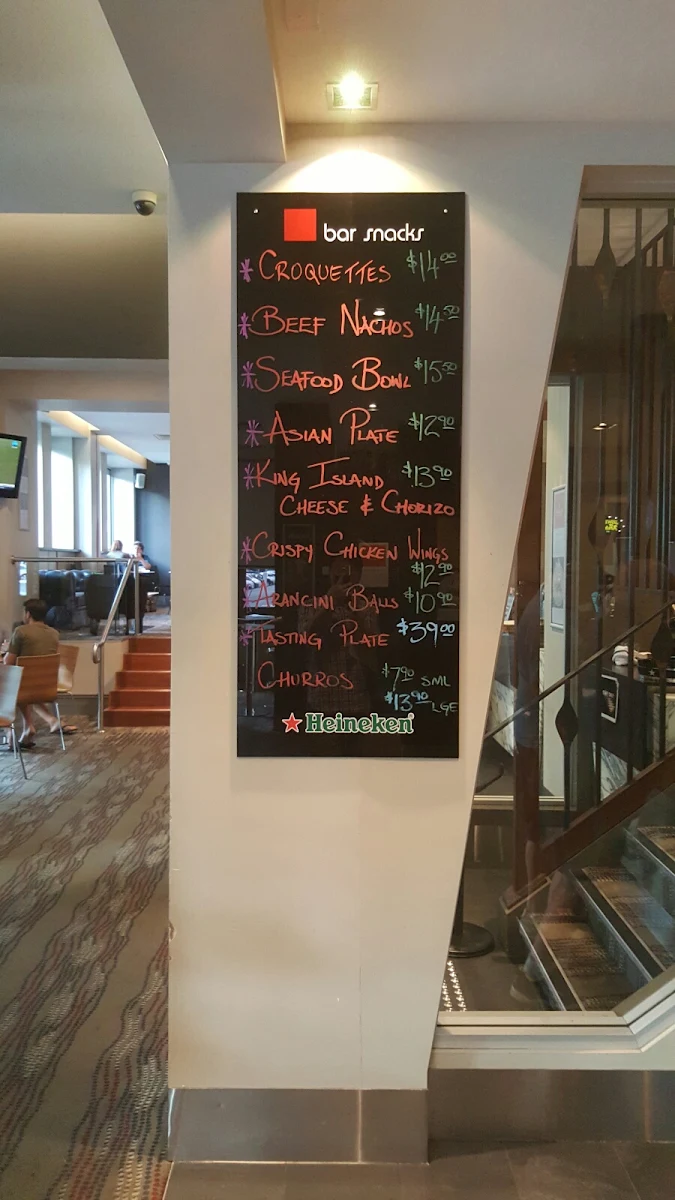 bar snacks
* CROQUETTES $14.00
* BEEF NACHOS $14.50
* SEAFOOD BOWL $15.50
* ASIAN PLATE $12.90
* KING ISLAND $13.90
CHEESE & CHORIZO
* CRISPY CHICKEN WINGS
$12.90
* ARANCINI BALLS $10.90
* TASTING PLATE $39.00
CHURROS $7.90 SML
$13.90 LGE
Heineken